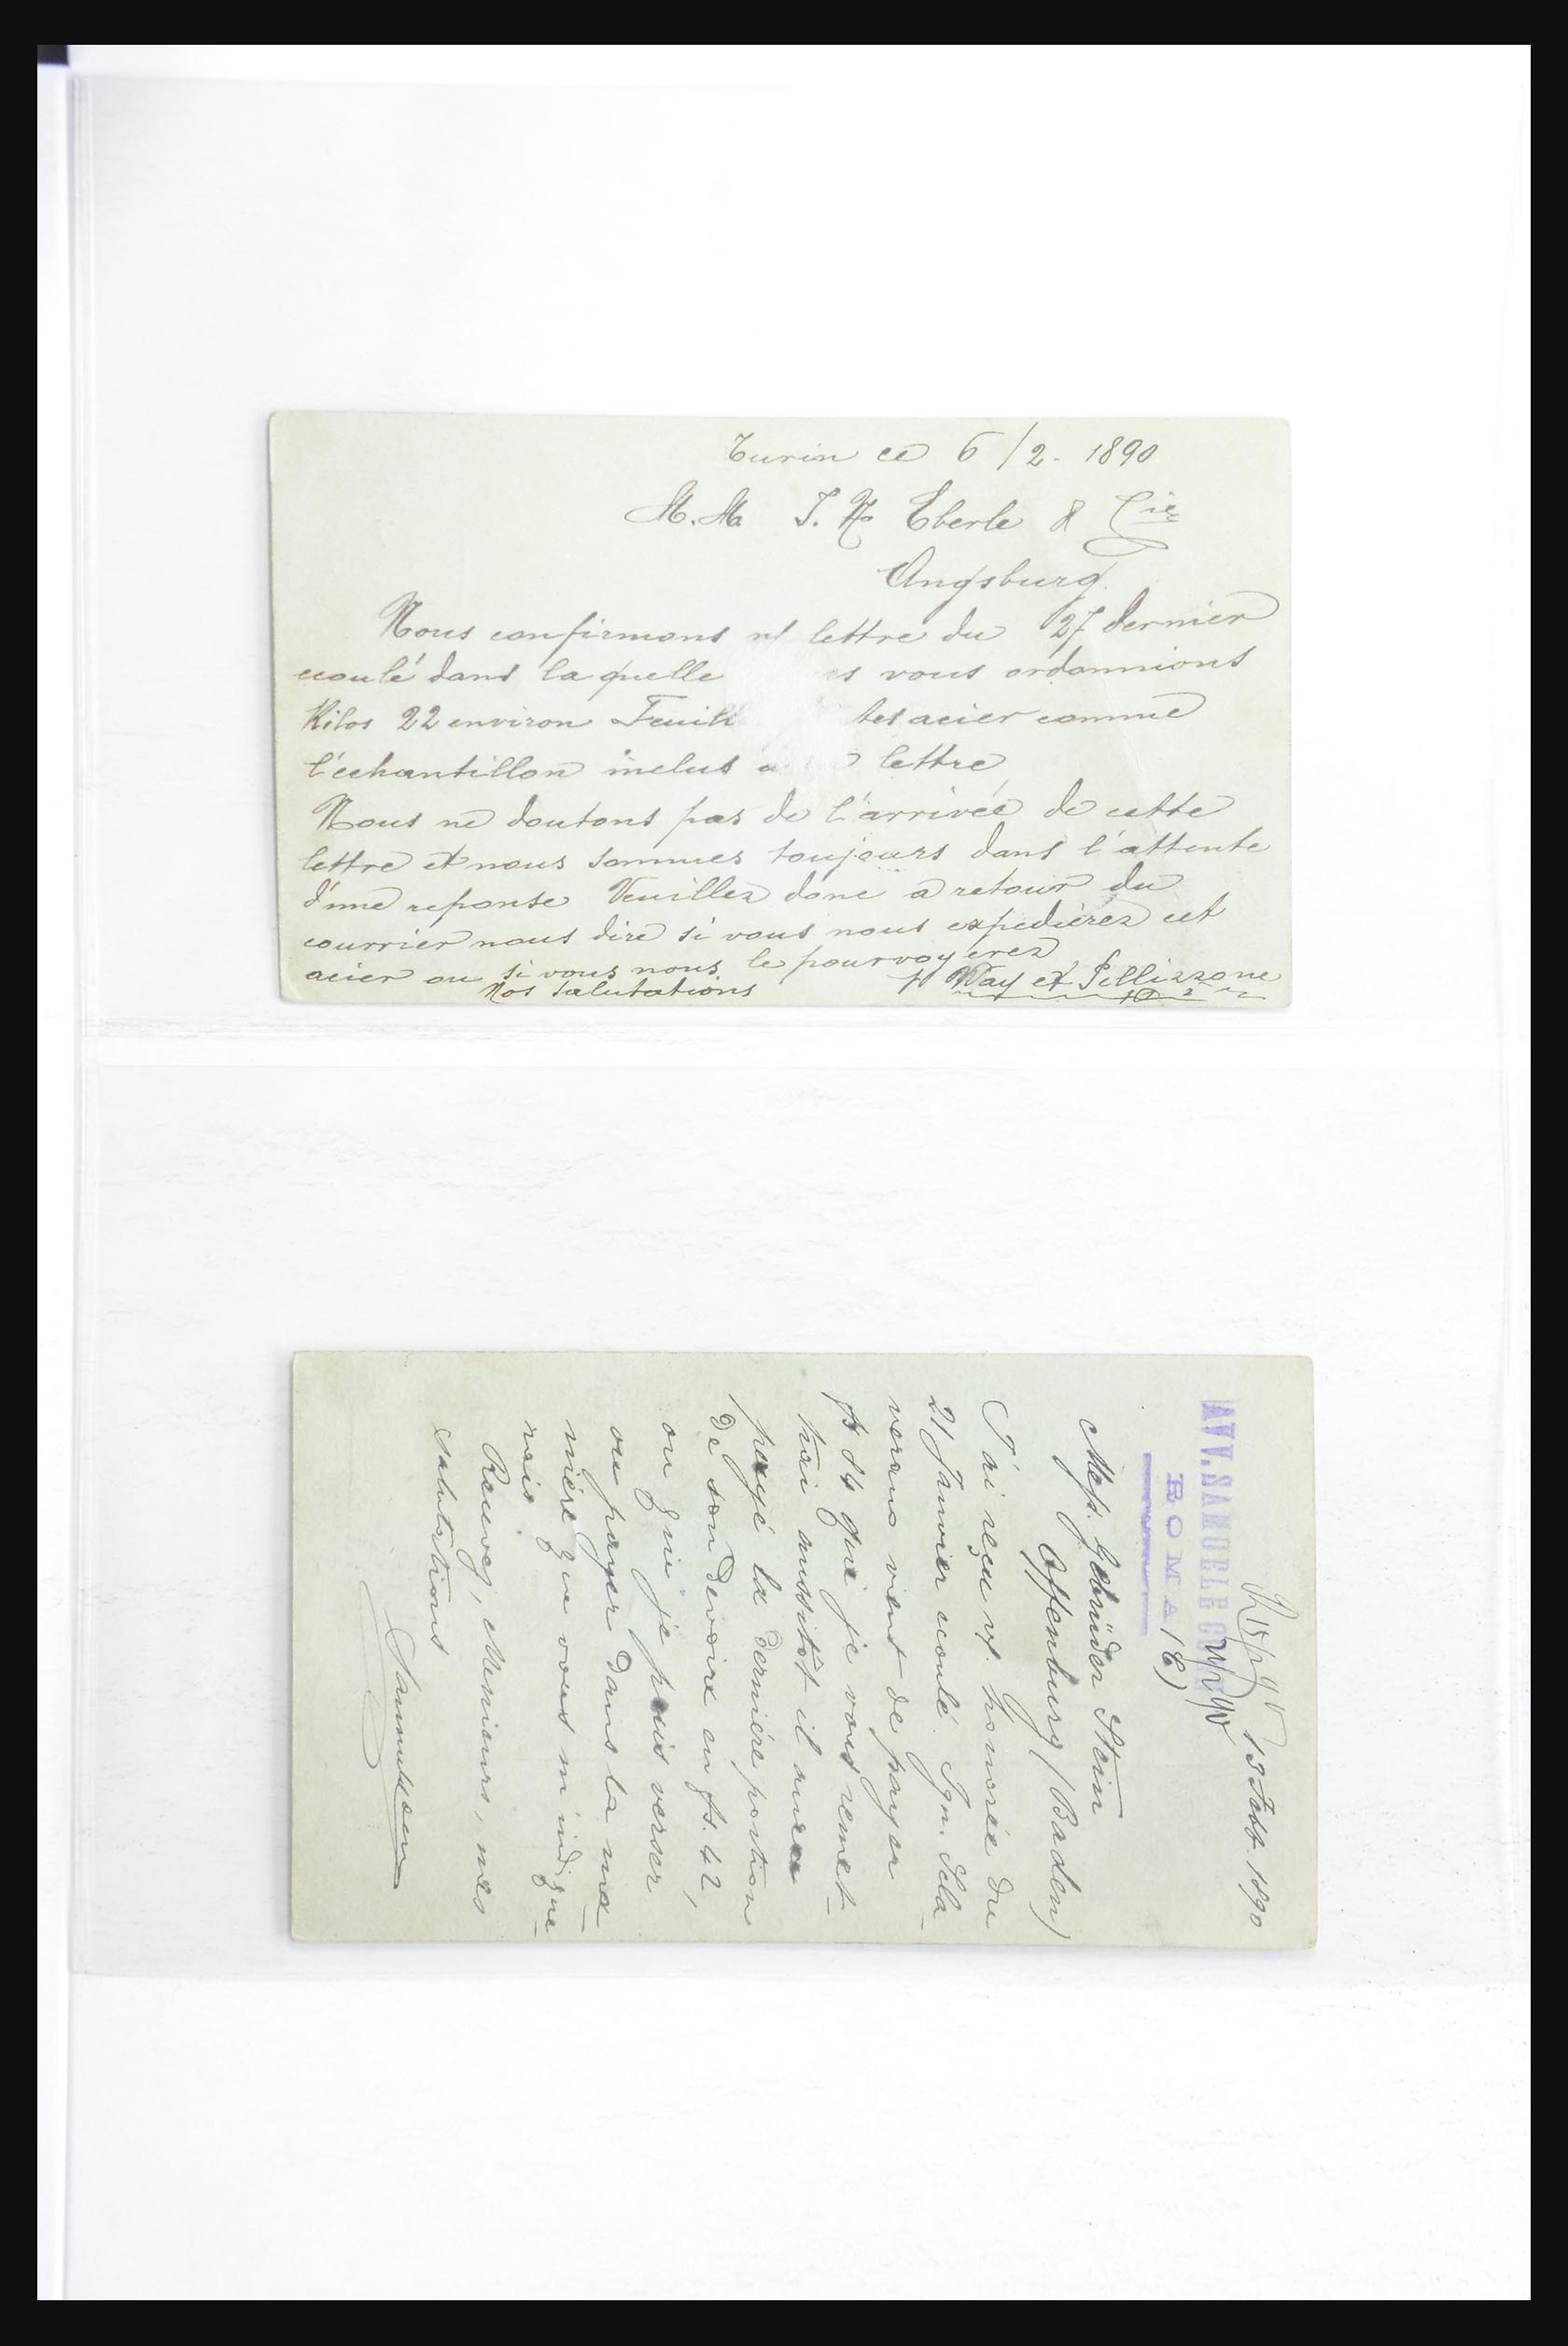 Turin ce 6/2 - 1890
M. M. J. N. Eberle & Cie
Augsburg.
Nous confirmons n/ lettre du 27 dernier
ecoulé dans la quelle vous ordonnions
Kilos 22 environ acier comme
l'échantillon inclus lettre
Nous ne doutons pas de l'arrivée de cette
lettre et nous sommes toujours dans l'attente
d'une reponse Veuillez donc a retour du
courrier nous dire si vous nous expedierez cet
acier ou si vous nous le pourvoyerez
Nos salutations Way et Pellizzone
13 1890
AVV. SAMUELE
ROMA
Mess. Gebrüder Stein
Offenburg (Baden)
J'ai reçu vt. honorée du
21 Janvier ecoulé. Sgn. Sch-
verano vient de payer
fs 84 que je vous remet-
trai aussitôt il aura
payé la derniére portion
de son devoire en fs. 42,
ou que je puis verser
ou payer dans la ma-
niére que vous m'indique-
reis.
Recevez, Messieurs, mes
salutations